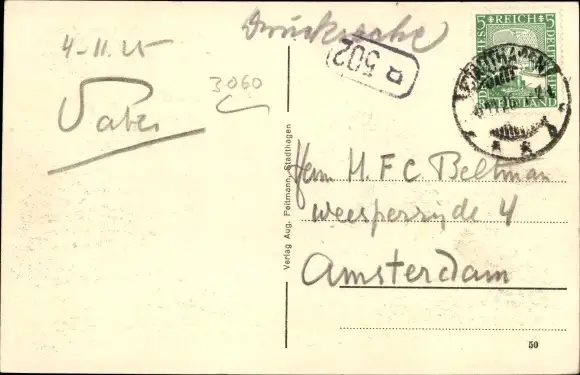 Drucksache
5 REICH 5
4-11.25
502
3060
Vater
Herrn H. F C Beltman
Weesperzijde 4
Amsterdam
Verlag Aug. Peitmann, Stadthagen
50